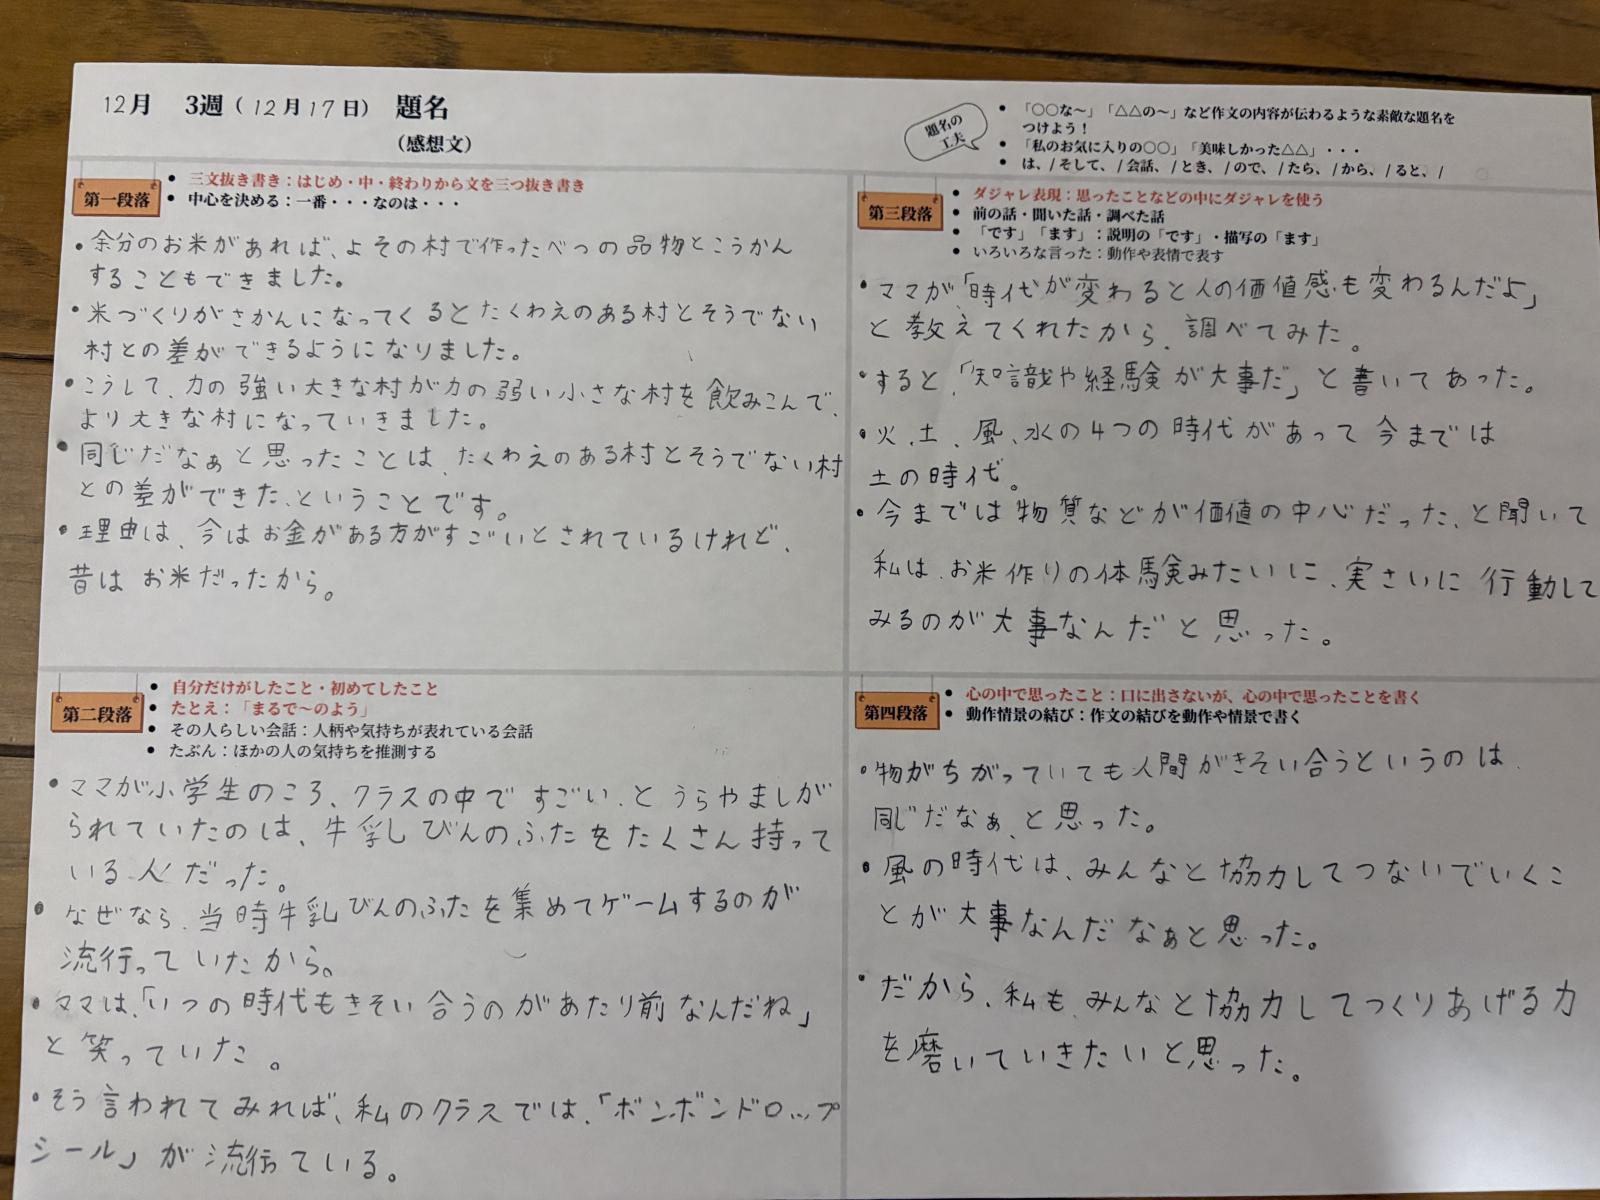 12月 3週(12月17日) 題名
(感想文)
題名の
工夫
• 「○○な〜」「△△の〜」など作文の内容が伝わるような素敵な題名を
つけよう!
• 「私のお気に入りの○○」「美味しかった△△」・・・
• は、/ そして、/ 会話、/ とき、/ ので、/ たら、/ から、/ ると、/
第一段落
• 三文抜き書き:はじめ・中・終わりから文を三つ抜き書き
• 中心を決める:一番・・・なのは・・・
• 余分のお米があれば、よその村で作ったべつの品物とこうかん
することもできました。
• 米づくりがさかんになってくるとたくわえのある村とそうでない
村との差ができるようになりました。
• こうして、力の強い大きな村が力の弱い小さな村を飲みこんで、
より大きな村になっていきました。
• 同じだなぁと思ったことは、たくわえのある村とそうでない村
との差ができた、ということです。
• 理由は、今はお金がある方がすごいとされているけれど、
昔はお米だったから。
第二段落
• 自分だけがしたこと・初めてしたこと
• たとえ:「まるで〜のよう」
• その人らしい会話:人柄や気持ちが表れている会話
• たぶん:ほかの人の気持ちを推測する
• ママが小学生のころ、クラスの中ですごい、とうらやましが
られていたのは、牛乳びんのふたをたくさん持って
いる人だった。
• なぜなら、当時牛乳びんのふたを集めてゲームするのが
流行っていたから。
• ママは、「いつの時代もきそい合うのがあたり前なんだね」
と笑っていた。
• そう言われてみれば、私のクラスでは、「ボンボンドロップ
シール」が流行っている。
第三段落
• ダジャレ表現:思ったことなどの中にダジャレを使う
• 前の話・聞いた話・調べた話
• 「です」「ます」:説明の「です」・描写の「ます」
• いろいろな言った:動作や表情で表す
• ママが「時代が変わると人の価値感も変わるんだよ」
と教えてくれたから、調べてみた。
• すると、「知識や経験が大事だ」と書いてあった。
• 火、土、風、水の4つの時代があって今までは
土の時代。
• 今までは物質などが価値の中心だった、と聞いて
私は、お米作りの体験みたいに、実さいに行動して
みるのが大事なんだと思った。
第四段落
• 心の中で思ったこと:口に出さないが、心の中で思ったことを書く
• 動作情景の結び:作文の結びを動作や情景で書く
• 物がちがっていても人間がきそい合うというのは、
同じだなぁ、と思った。
• 風の時代は、みんなと協力してつないでいくこ
とが大事なんだなぁと思った。
• だから、私も、みんなと協力してつくりあげる力
を磨いていきたいと思った。